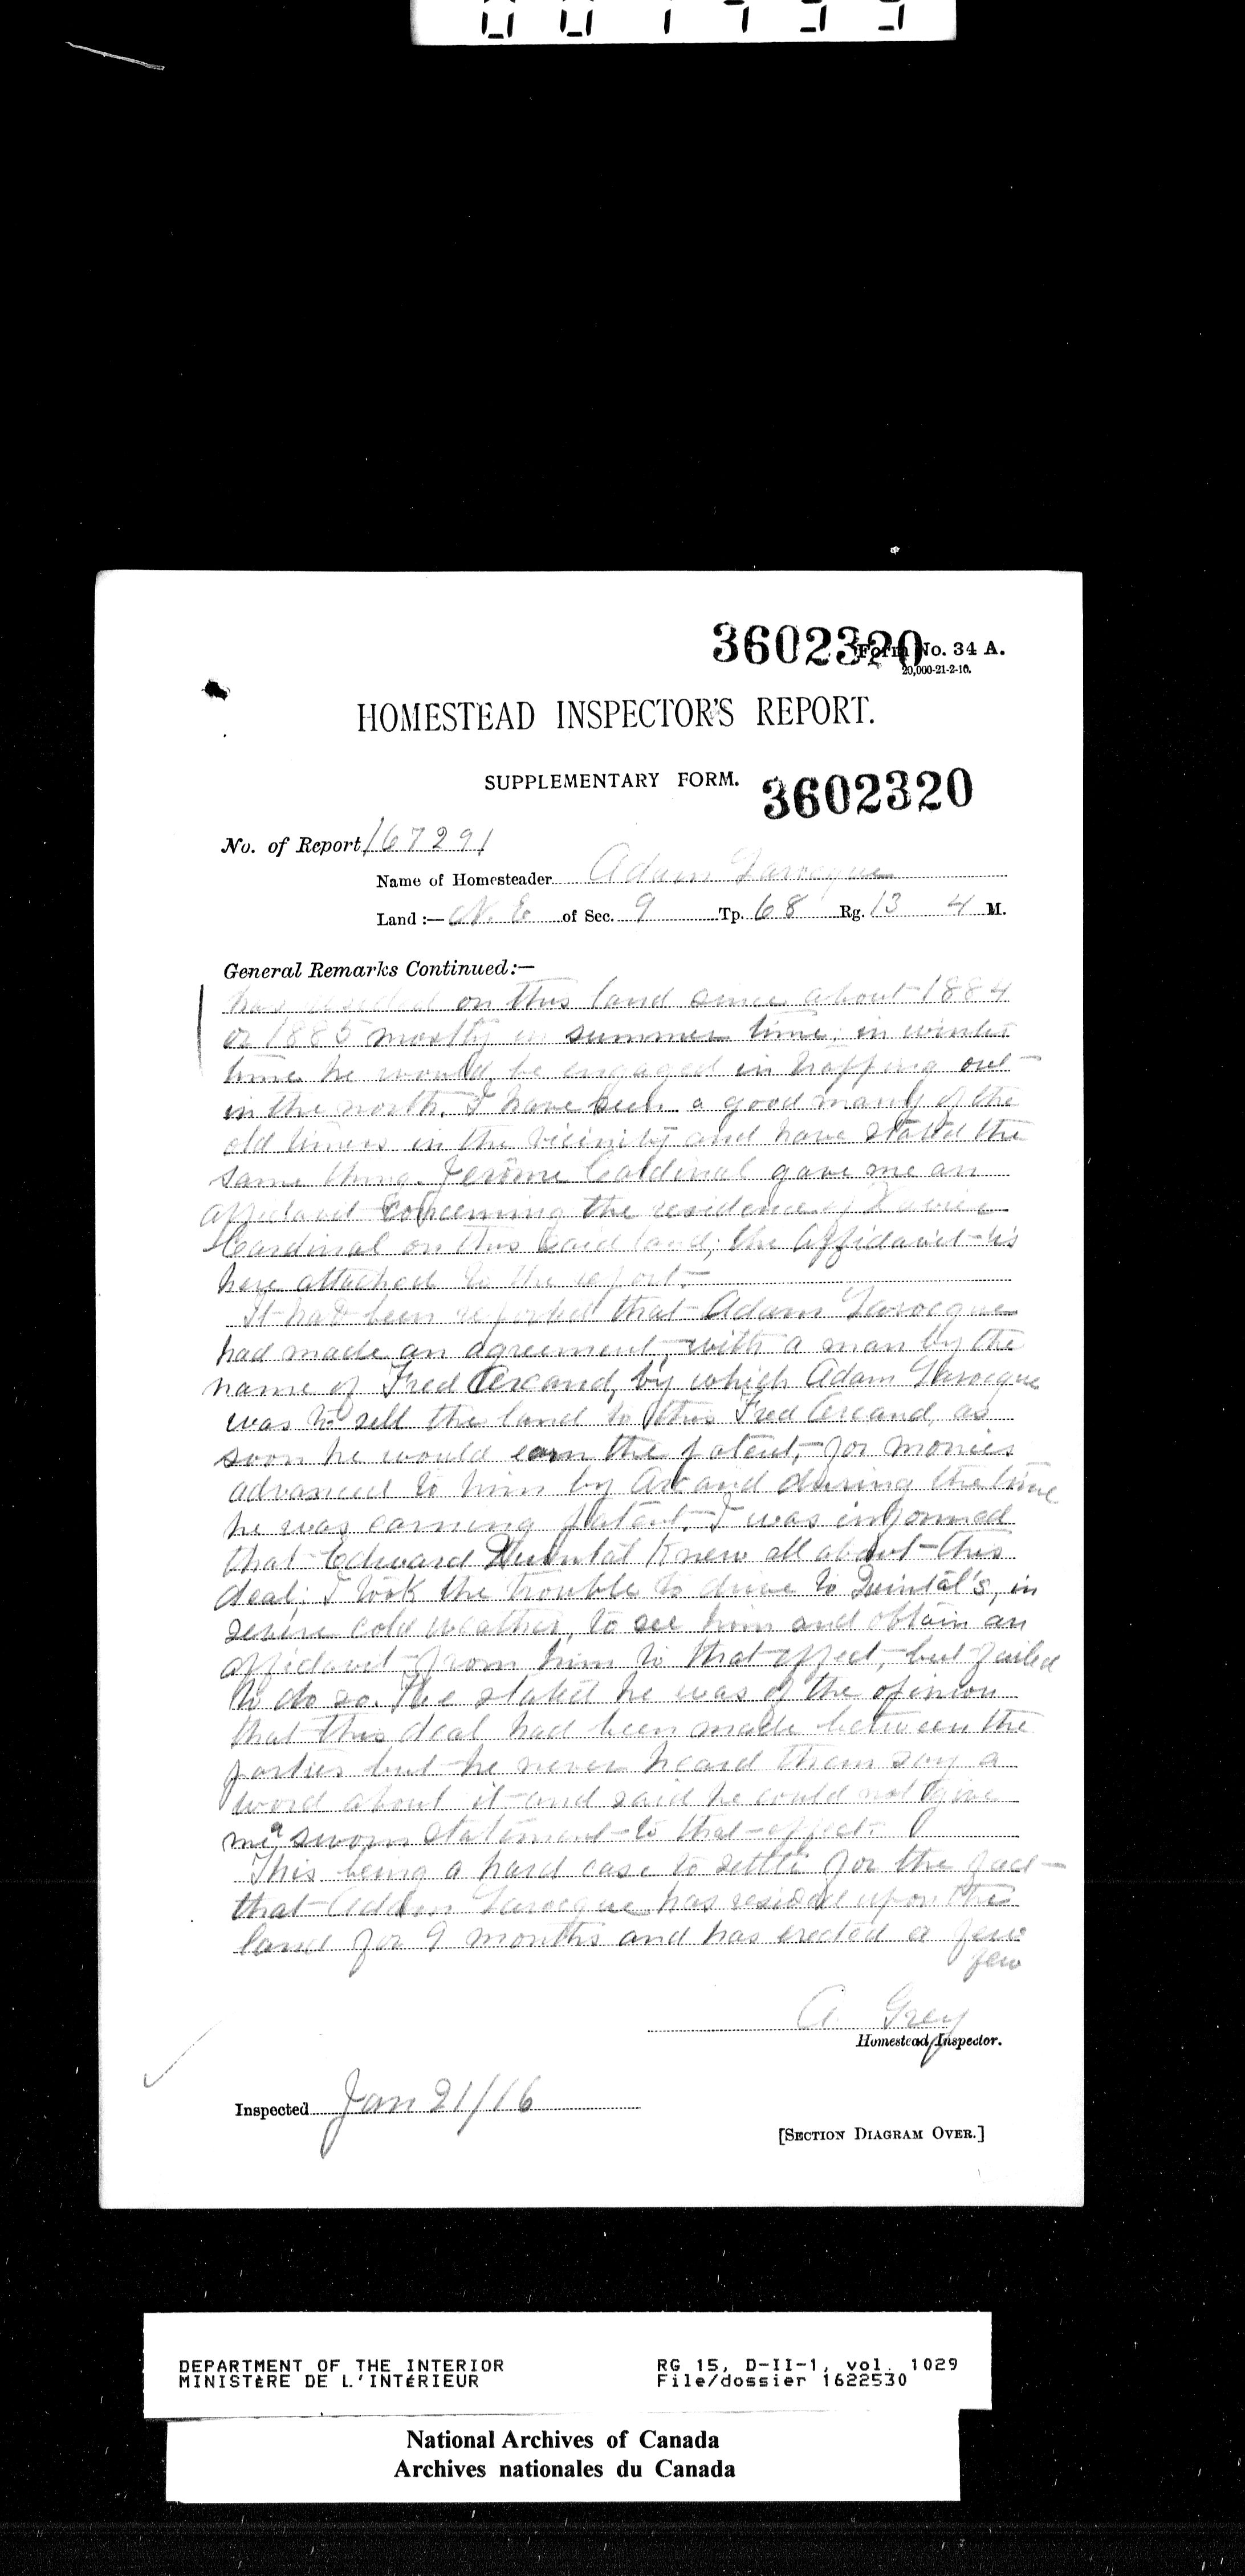 001799
3602320
Form No. 34 A.
20,000-21-2-10.
HOMESTEAD INSPECTOR'S REPORT.
SUPPLEMENTARY FORM.
3602320
No. of Report 167291
Name of Homesteader Adam Larocque
Land :— N. E. of Sec. 9 Tp. 68 Rg. 13 4 M.
General Remarks Continued:—
has resided on this land since about 1884
or 1885 mostly in summer time; in winter
time he would be engaged in trapping out
in the north. I have seen a good many of the
old timers in the vicinity and have stated the
same thing. Jerôme Caldinal gave me an
affidavit concerning the residence of Xavier
Cardinal on this said land; the affidavit is
here attached to the report.
It had been reported that Adam Larocque
had made an agreement, with a man by the
name of Fred Arcand, by which Adam Larocque
was to sell the land to this Fred Arcand, as
soon he would earn the patent, for monies
advanced to him by Arcand during the time
he was earning patent. I was informed
that Edward Quintal knew all about this
deal; I took the trouble to drive to Quintal's, in
severe cold weather, to see him and obtain an
affidavit from him to that effect, but failed
to do so. He stated he was of the opinion
that this deal had been made between the
parties but he never heard them say a
word about it and said he could not give
me a sworn statement to that effect.
This being a hard case to settle for the fact
that Adam Larocque has resided upon the
land for 9 months and has erected a few
few
A. Grey
Homestead Inspector.
Inspected Jan 21/16
[SECTION DIAGRAM OVER.]
DEPARTMENT OF THE INTERIOR
MINISTÈRE DE L'INTÉRIEUR
RG 15, D-II-1, vol. 1029
File/dossier 1622530
National Archives of Canada
Archives nationales du Canada